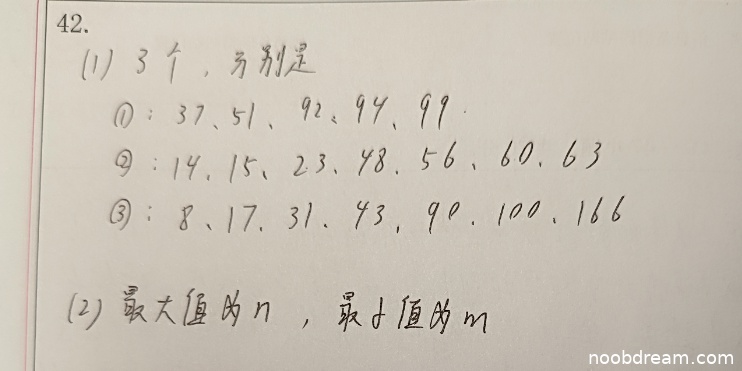 42.
(1) 3个，分别是
①：37、51、92、94、99.
②：14、15、23、48、56、60、63
③：8、17、31、43、90、100、166
(2) 最大值为n，最小值为m
noobdream.com